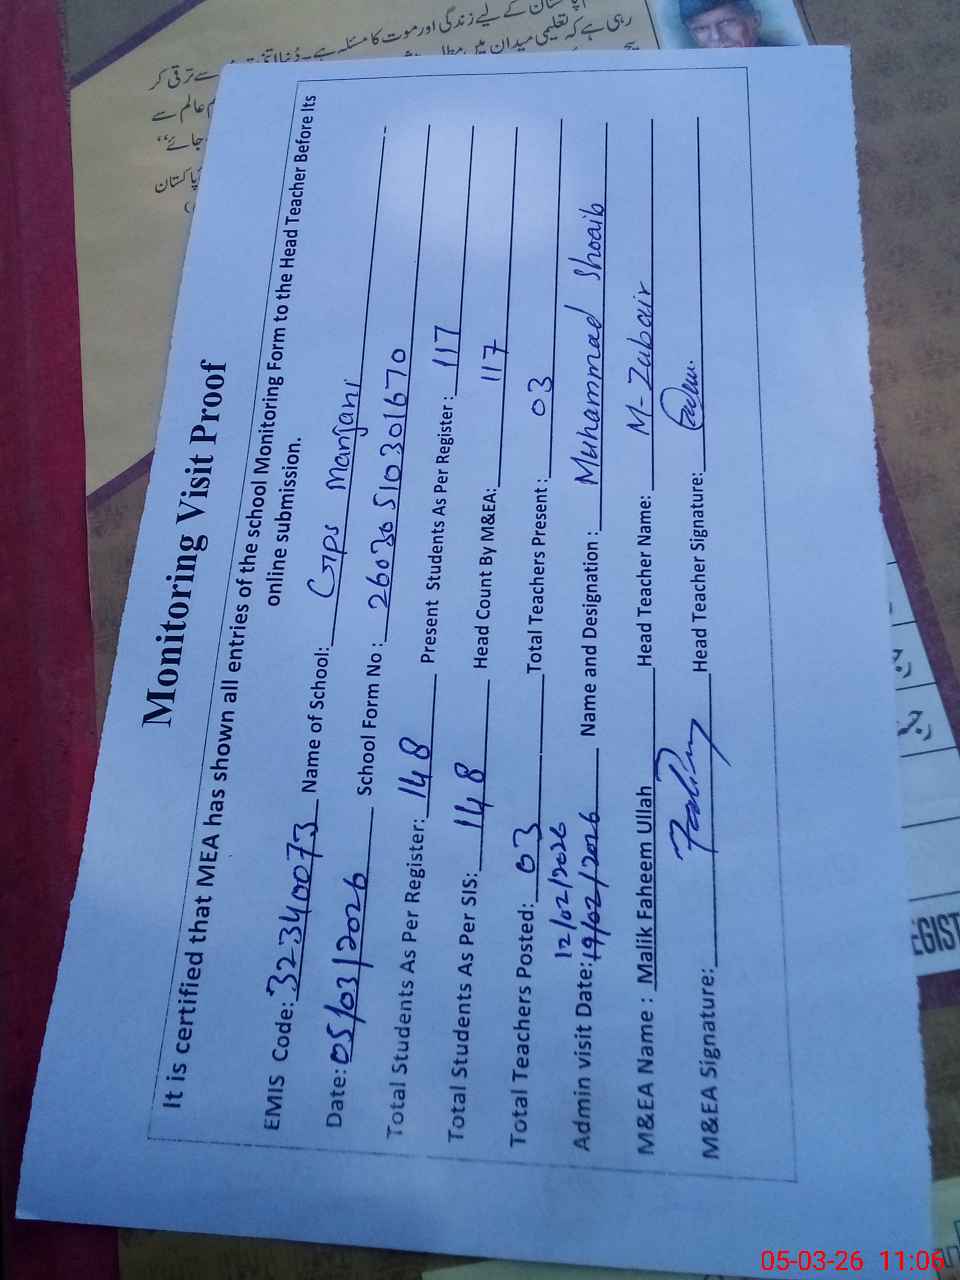 پاکستان کے لیے زندگی اور موت کا مسئلہ ہے۔ دُنیا اتنی
رہی ہے کہ تعلیمی میدان میں
سے ترقی کر
عالم سے
جائے“
پاکستان
Monitoring Visit Proof
It is certified that MEA has shown all entries of the school Monitoring Form to the Head Teacher Before Its
online submission.
EMIS Code: 32340073 Name of School: GPS Manjani
Date: 05/03/2026 School Form No : 26030510301670
Total Students As Per Register: 148 Present Students As Per Register : 117
Total Students As Per SIS: 148 Head Count By M&EA: 117
Total Teachers Posted: 03 Total Teachers Present : 03
12/02/2026
Admin visit Date: 19/02/2026 Name and Designation : Muhammad Shoaib
M&EA Name : Malik Faheem Ullah Head Teacher Name: M-Zubair
M&EA Signature: Head Teacher Signature:
EGIST
05-03-26 11:06